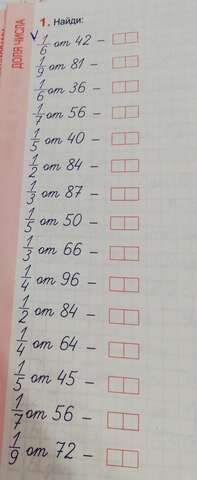 ДОЛЯ ЧИСЛА
1. Найди:
1/6 от 42 –
1/9 от 81 –
1/6 от 36 –
1/7 от 56 –
1/5 от 40 –
1/2 от 84 –
1/3 от 87 –
1/5 от 50 –
1/3 от 66 –
1/4 от 96 –
1/2 от 84 –
1/4 от 64 –
1/5 от 45 –
1/7 от 56 –
1/9 от 72 –